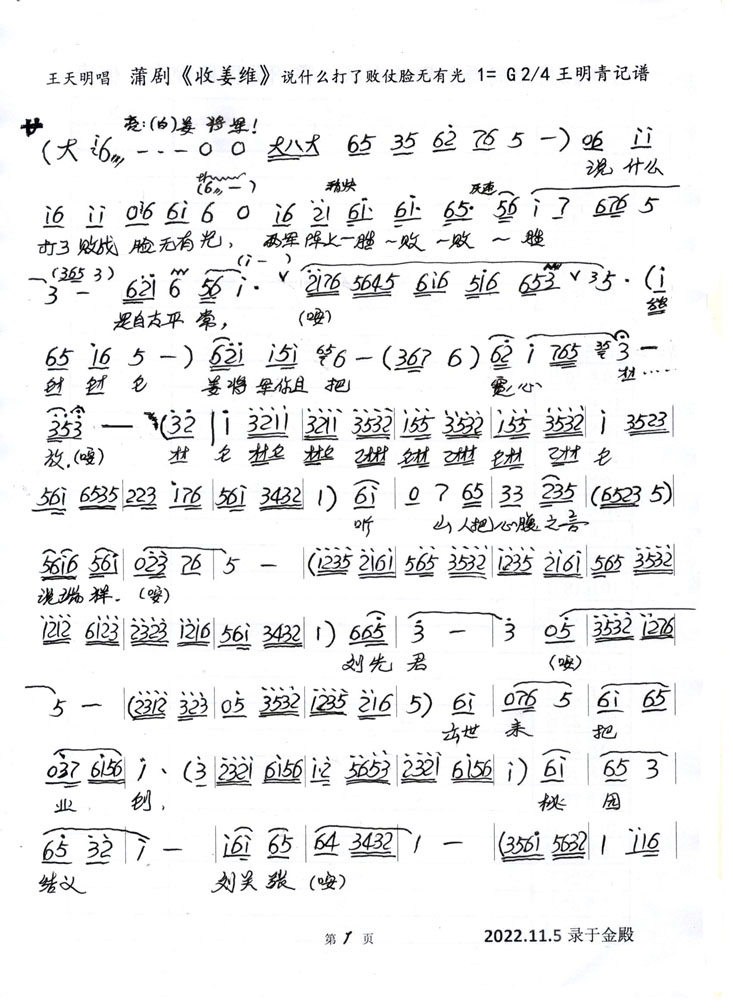 王天明唱 蒲剧《收姜维》说什么打了败仗脸无有光 1= G 2/4 王明青记谱
老:(白)姜将军!
(大 i6 - - - 0 0 大八大 65 35 62 76 5 - ) 06 ii
说 什么
(i6 - )
稍快
i6 ii 0i6 6i 6 0 i6 2i 6i· 6i· 65· 56 i 7 676 5
打了 败战 脸 无有 光, 两军 阵上 一胜 ~败 ~败 ~ 胜
(365 3) (i - )
3 - 62i 6 56 i· V 2i76 5645 6i6 5i6 653 V 35 · (i
是自古平 常, (哎)
65 i6 5 - ) 62i i5i 6 - (367 6) 62 i 765 3 -
姜将 军你且 把 宽心
353 - (32 | i 32ii | 32ii 3532 | i55 3532 | i55 3532 | i 3523
放.(哎)
56i 6535 | 223 i76 | 56i 3432 | 1) 6i | 0 7 65 | 33 235 | (6523 5) |
听 山 人把 心腹 之言
56i6 56i | 023 76 | 5 - | (i235 2i6i | 565 3532 | i235 2i6i | 565 3532 |
说端详. (哎)
i2i2 6i23 | 2323 i2i6 | 56i 3432 | 1) 665 | 3 - | 3 05 | 3532 i276 |
刘先 君 (哎)
5 - | (23i2 323 | 05 3532 | i235 2i6 | 5) 6i | 076 5 | 6i 65 |
出世 来 把
037 6i56 | i · (3 | 232i 6i56 | i·2 5653 | 232i 6i56 | i) 6i | 65 3 |
业 创, 桃 园
65 32 | i - | i6i 65 | 64 3432 | 1 - | (356i 5632 | 1 ii6 |
结义 刘关 张 (哎)
第 1 页
2022.11.5 录于金殿